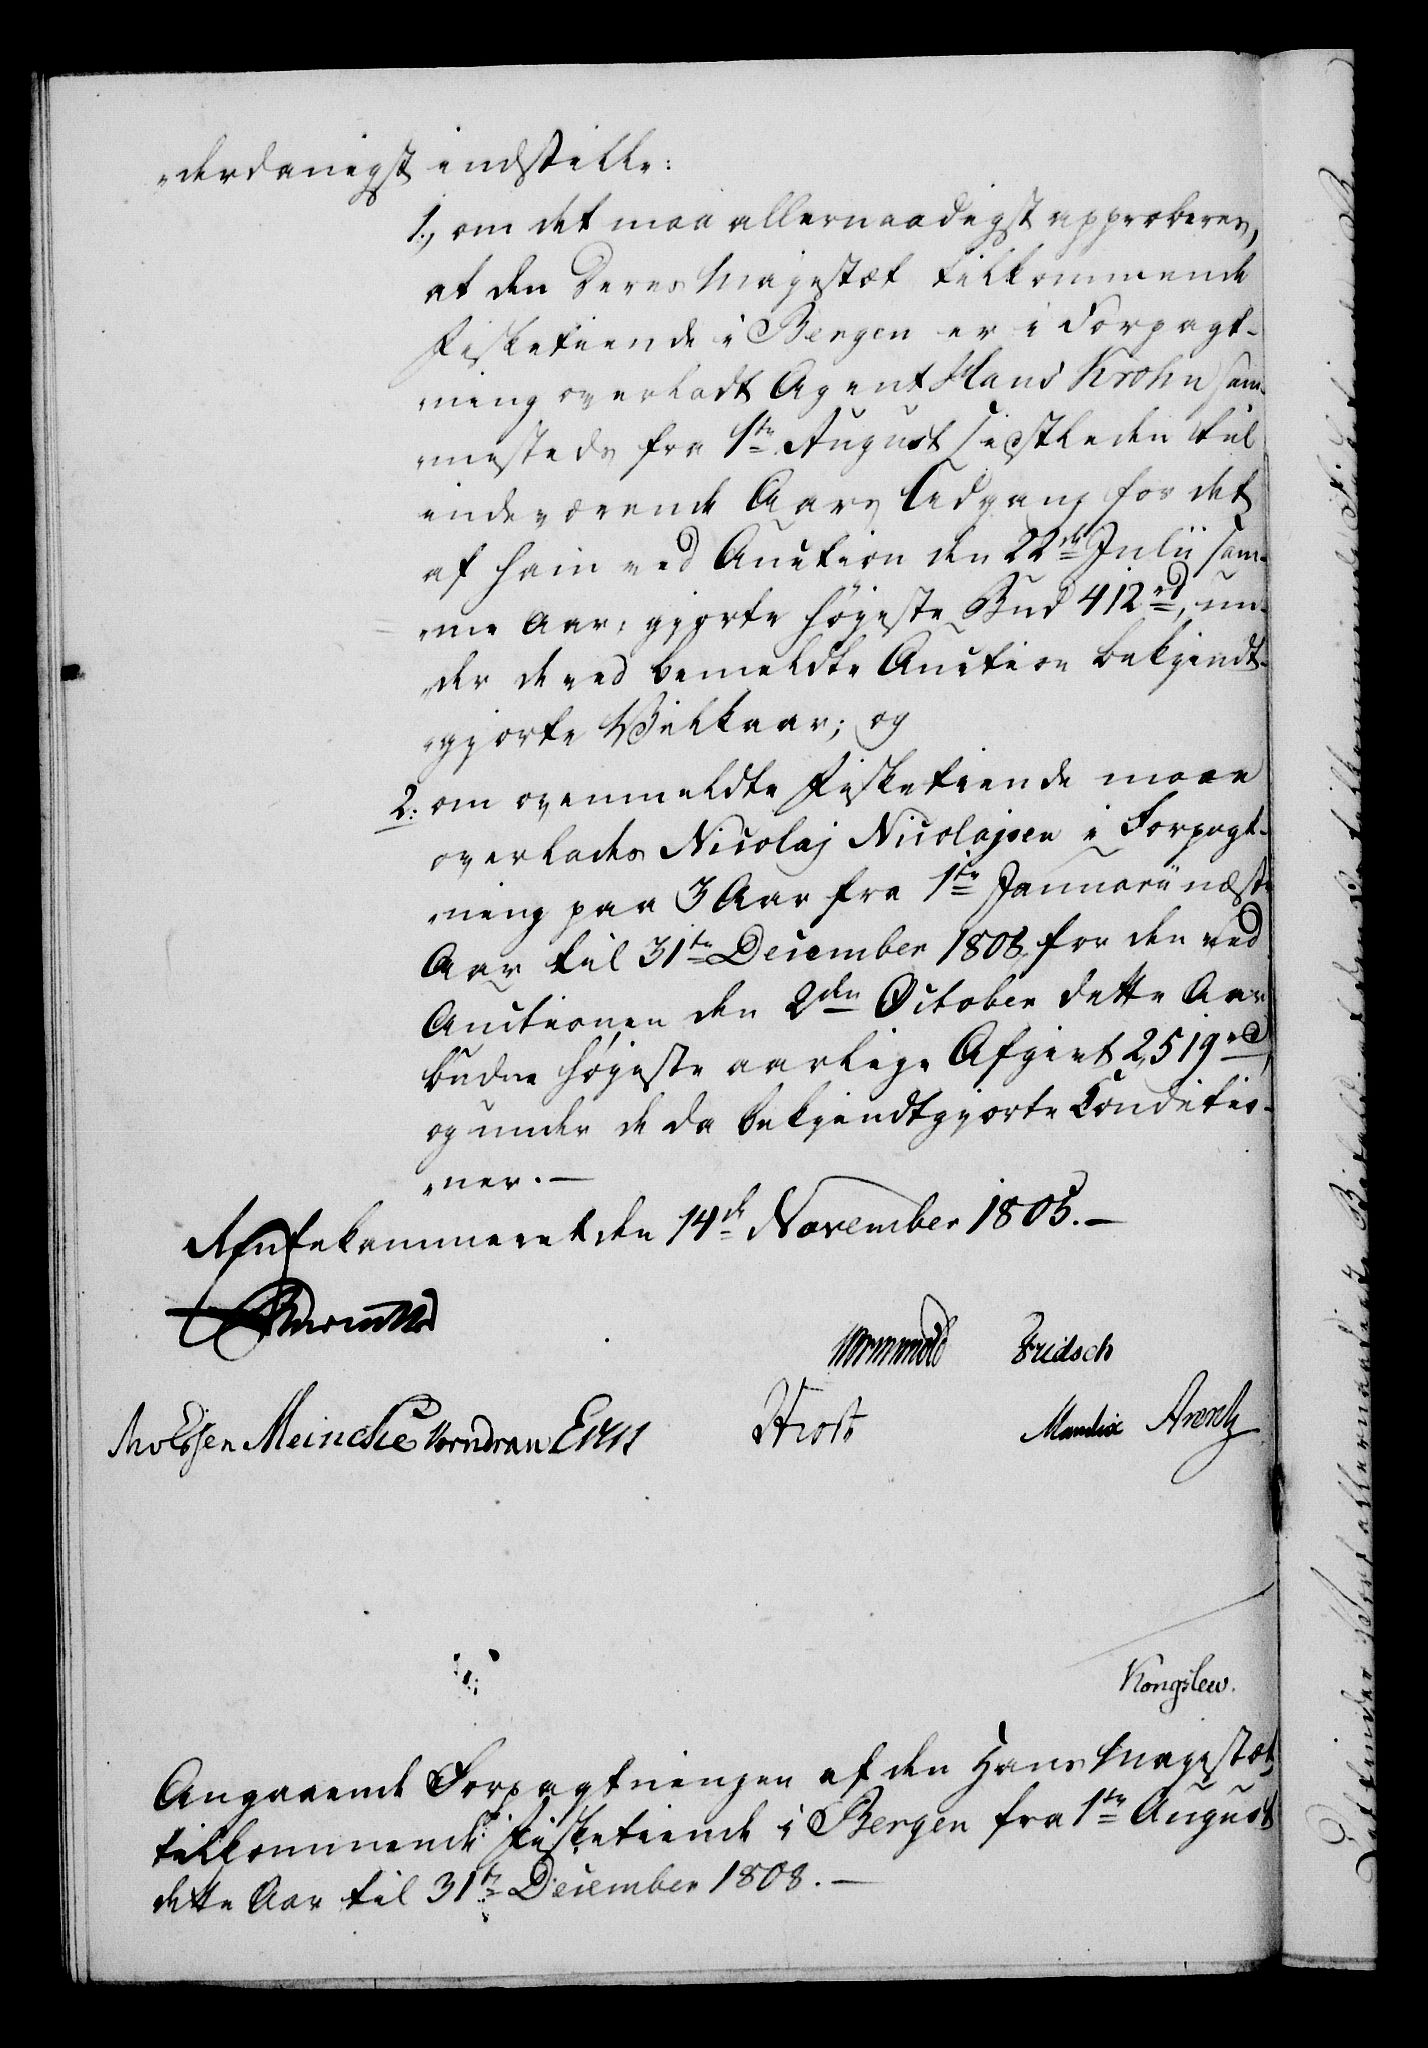 „derdanigst indstille:
1., om det maa allernaadigst approberes,
at den Deres Majestæt tilkommende
Fisketiende i Bergen er i Forpagt-
„ning overladt Agent Hans Krohn sam-
„mesteds fra 1ste August sidstleden til
indeværende Aars Udgang for det
af ham ved Auction den 22de Julii sam-
„me Aar, gjorte høyeste Bud 412 rd, un-
„der de ved bemeldte Auction bekjendt-
„gjorte Vilkaar; og
2: om ovenmeldte Fisketiende maae
overlades Nicolaj Nicolajsen i Forpagt-
„ning paa 3 Aar fra 1ste Januarii næste
Aar til 31te December 1808 for den ved
Auctionen den 2den October dette Aar
budne høyeste aarlige Afgivt 2,519 rd,
og under de da bekjendtgjorte Conditio-
„ner. —
Rentekammeret den 14de November 1805. —
Wormskiold Fridsch
Molssen Meincke Vorndran Evers Høst Mandix Arentz
Kongslew.
Angaaende Forpagtningen af den Hans Majestæt
tilkommende Fisketiende i Bergen fra 1ste August
dette Aar til 31te December 1808. —